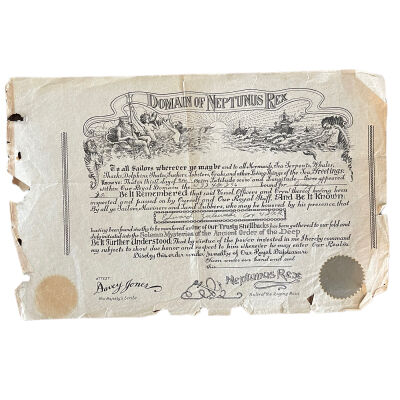 DOMAIN OF NEPTUNUS REX
To all Sailors wherever ye may be and to all Mermaids, Sea Serpents, Whales,
Sharks, Dolphins, Skates, Suckers, Lobsters, Crabs and other Living things of the Sea, Greetings:
Know ye, That on this day of Latitude and Longitude there appeared
within Our Royal Domain the bound for
Be It Remembered that said Vessel, Officers and Crew thereof being been
inspected and passed on by Ourself and Our Royal Staff, And Be It Known
By all ye Sailors, Mariners and Land Lubbers, who may be honored by his presence, that
having been found worthy to be numbered as one of Our Trusty Shellbacks has been gathered to our fold and
duly initiated into the Solemn Mysteries of the Ancient Order of the Deep
Be It Further Understood: That by virtue of the power invested in me I hereby command
my subjects to show due honor and respect to him whenever he may enter Our Realm
Disobey this order under penalty of Our Royal Displeasure
Given under our hand and seal this
ATTEST
Davey Jones
His Majesty's Scribe
NEPTUNUS REX
Ruler of the Raging Main